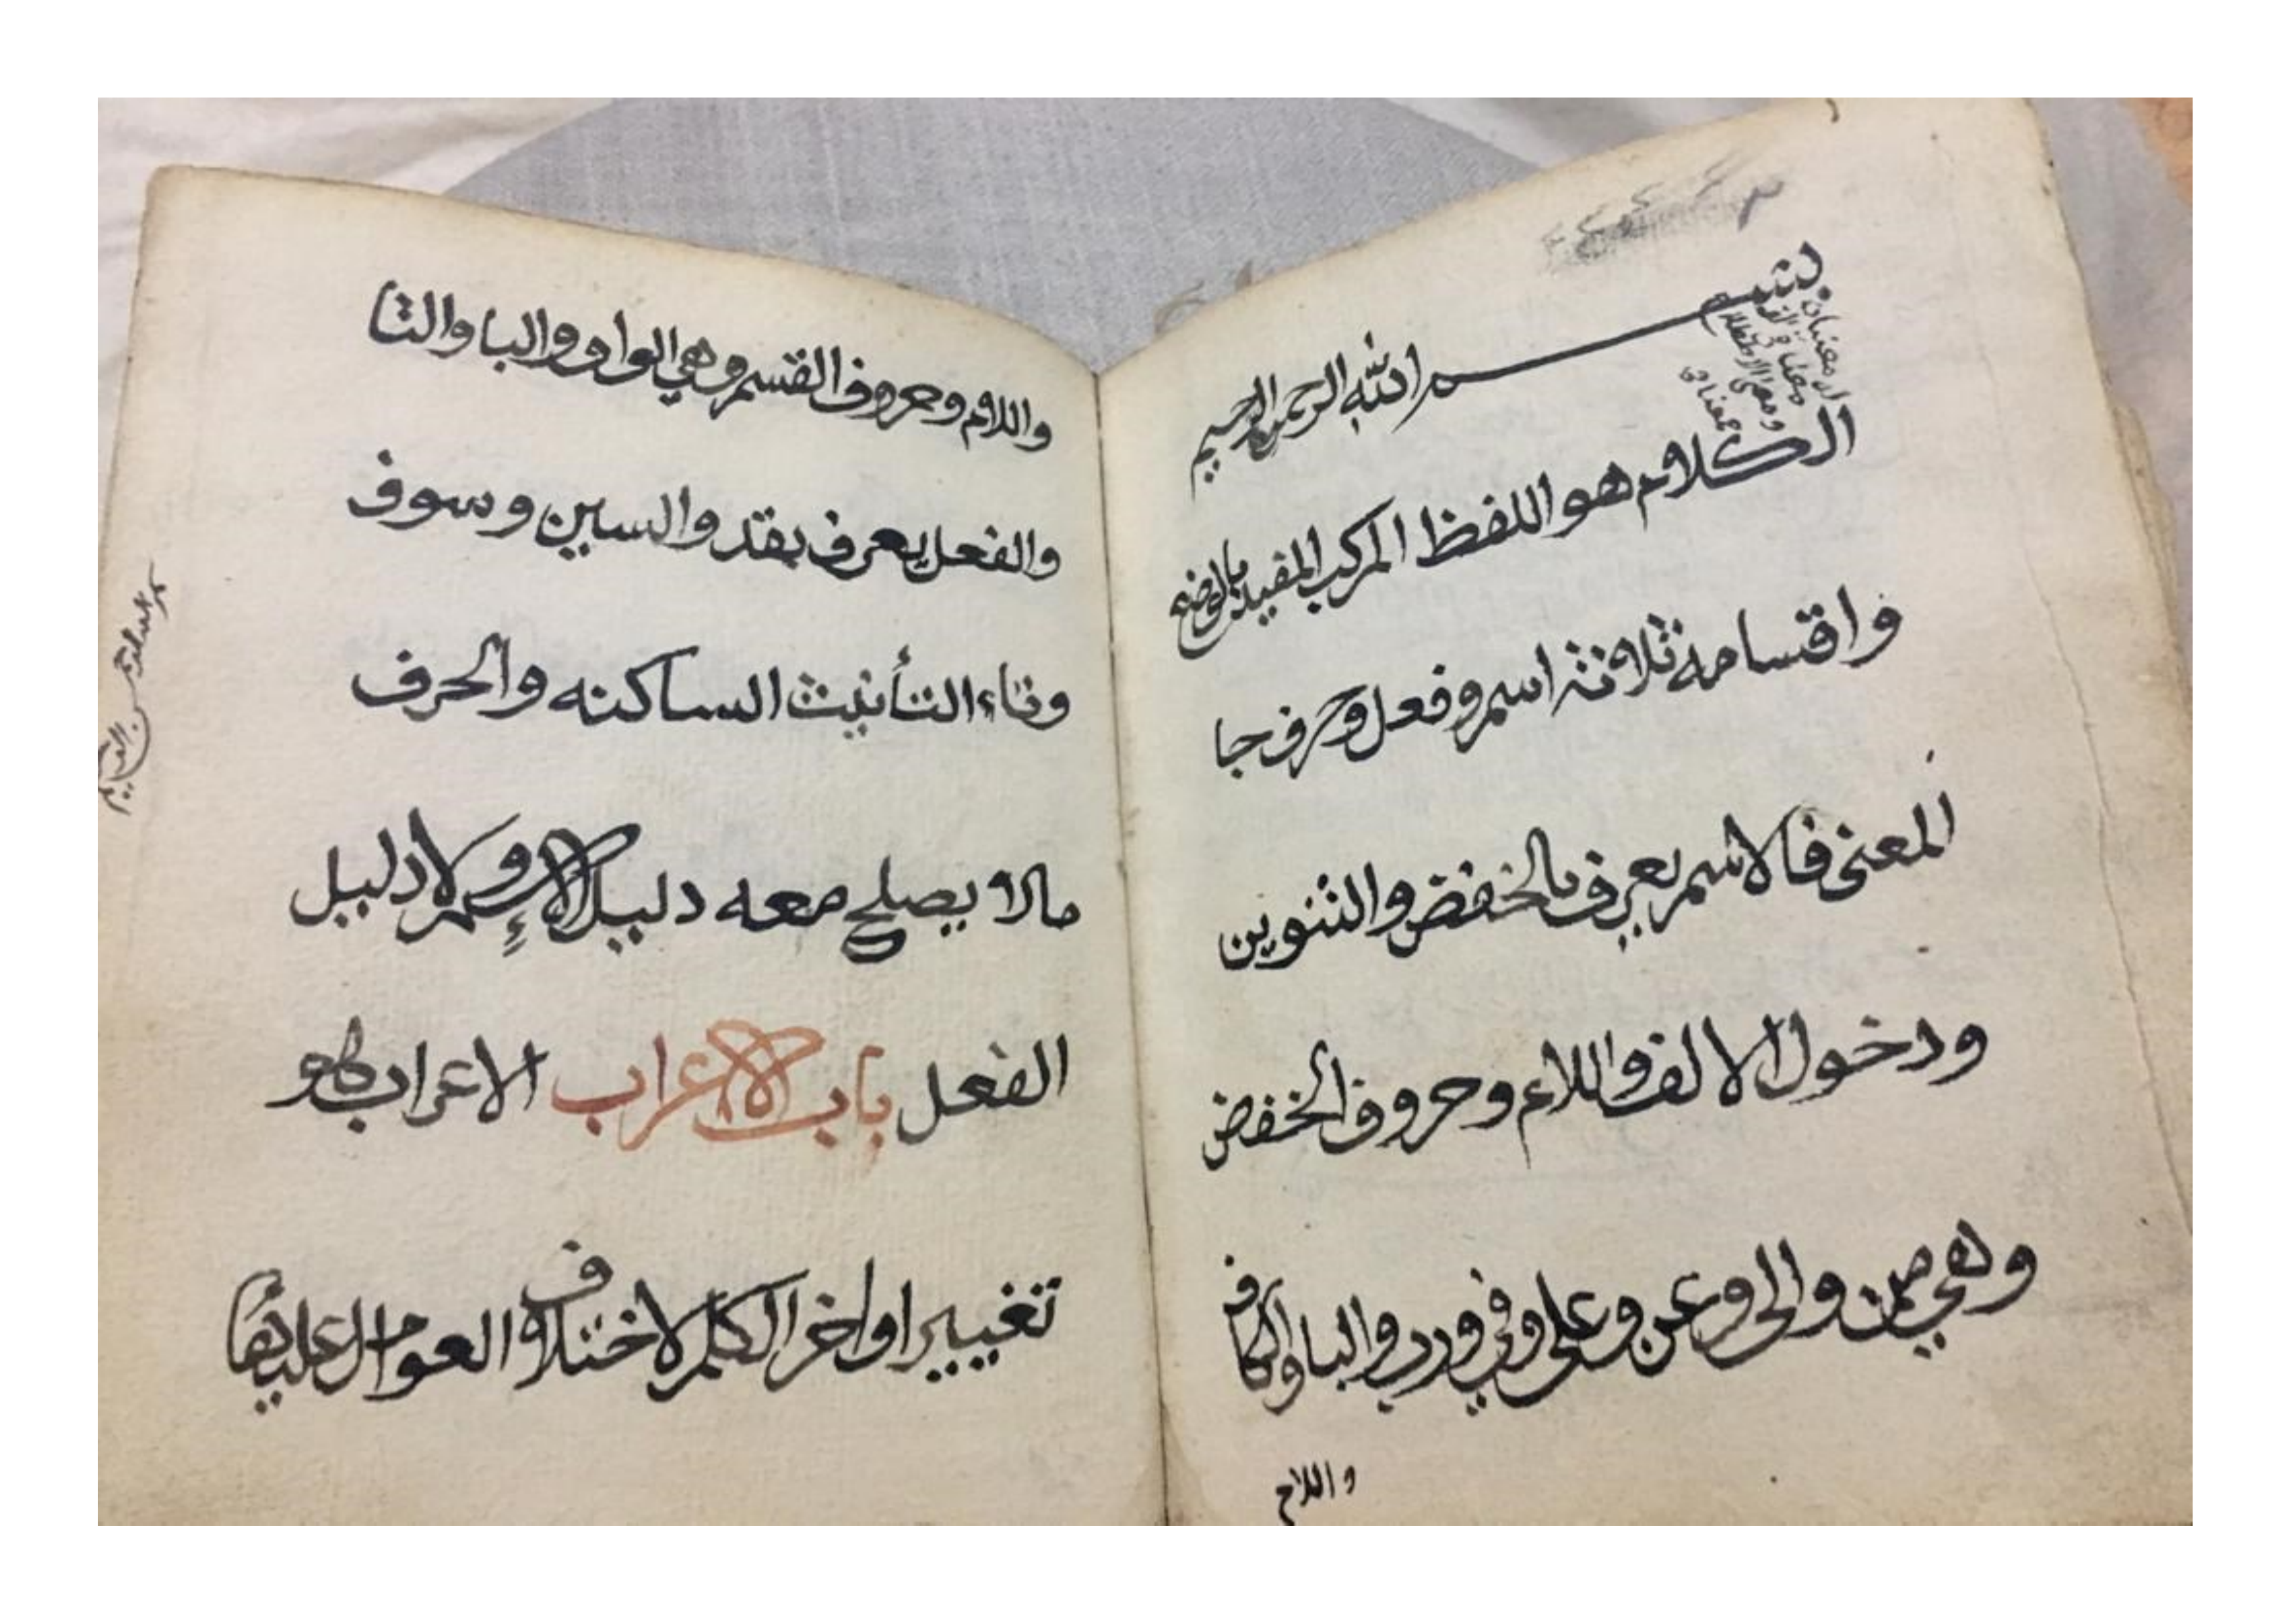 بسم الله الرحمن الرحيم
الكلام هو اللفظ المركب المفيد بالوضع
واقسامه ثلاثة اسم وفعل وحرف جا
المعنى فالاسم يعرف بالخفض والتنوين
ودخول الالف واللام وحروف الخفض
وهي من والى وعن وعلى وفي ورب والبا والكاف
واللام
واللام وحروف القسم وهي الواو والبا والتا
والفعل يعرف بقد والسين وسوف
وتاء التأنيث الساكنه والحرف
مالا يصلح معه دليل الإسم ولا دليل
الفعل باب الاعراب الاعراب هو
تغيير اواخر الكلم لاختلاف العوامل عليها